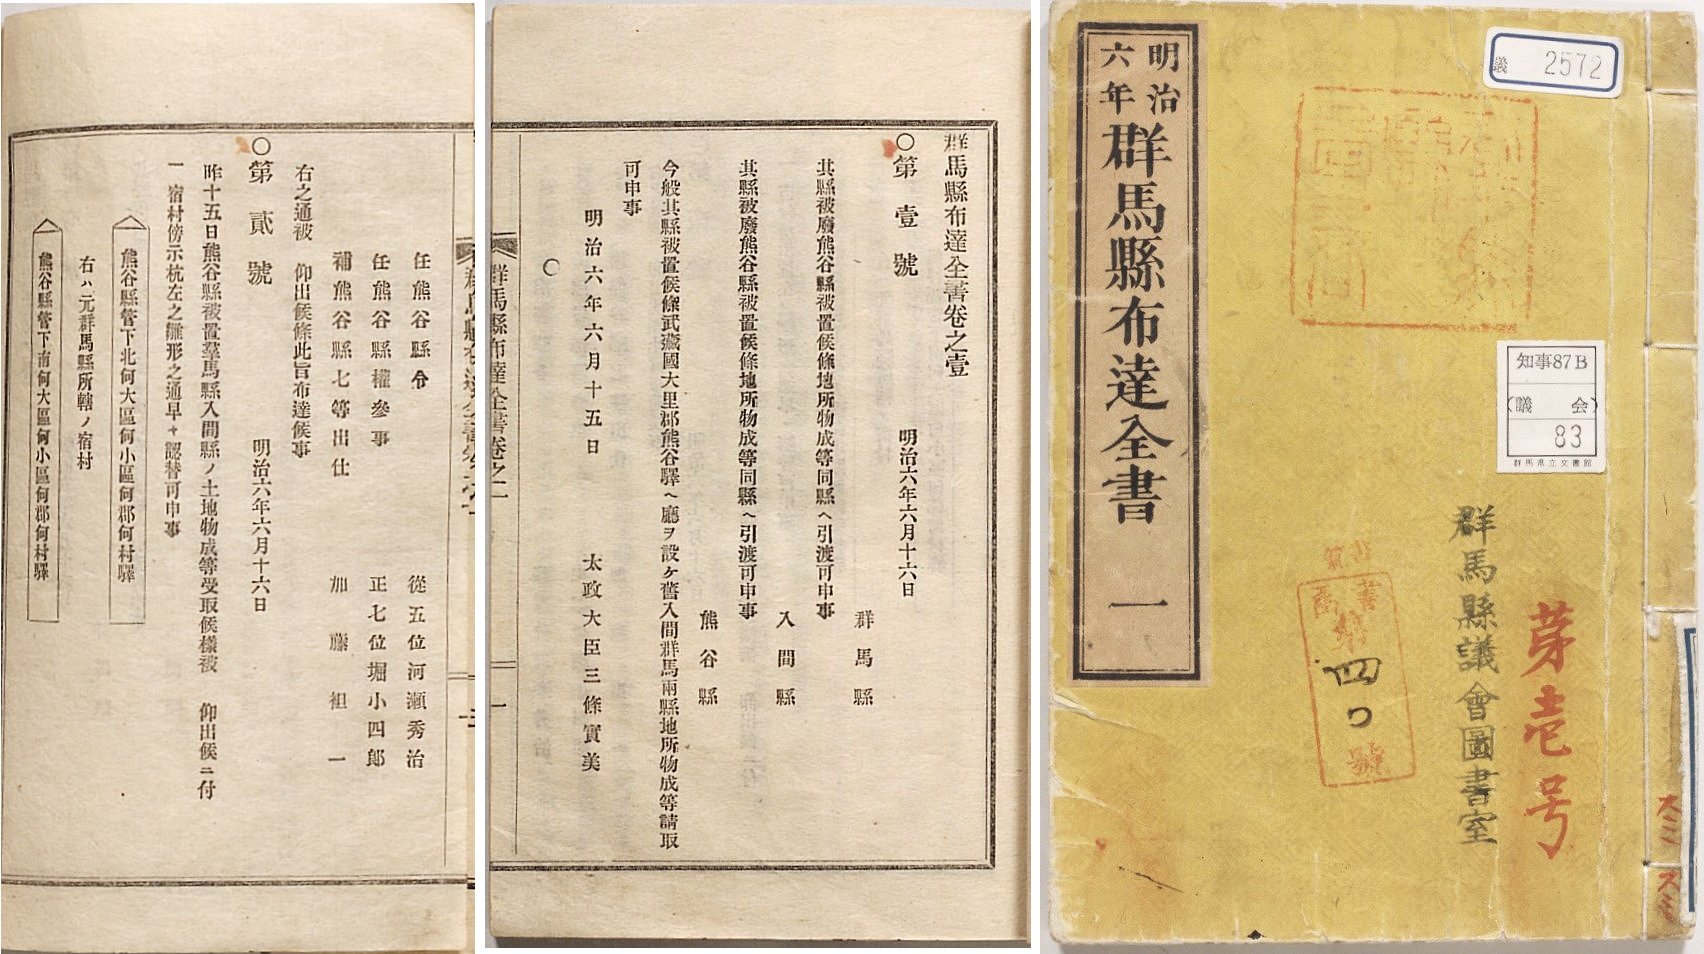 明治
六年
群馬縣布達全書 一
2572
議
知事87B
(議会)
83
群馬県立文書館
四
群馬縣議會圖書室
芽壱号
群馬縣布達全書卷之壹
〇第壹號
明治六年六月十六日
群馬縣
其縣被廢熊谷縣被置候條地所物成等同縣ヘ引渡可申事
入間縣
其縣被廢熊谷縣被置候條地所物成等同縣ヘ引渡可申事
熊谷縣
今般其縣被置候條武藏國大里郡熊谷驛ヘ廳ヲ設ケ舊入間群馬兩縣地所物成等請取
可申事
明治六年六月十五日 太政大臣三條實美
〇
群馬縣布達全書卷之一 一
任熊谷縣令 從五位河瀬秀治
任熊谷縣權參事 正七位堀小四郎
補熊谷縣七等出仕 加藤祖一
右之通被 仰出候條此旨布達候事
明治六年六月十六日
〇第貳號
昨十五日熊谷縣被置羣馬縣入間縣ノ土地物成等受取候樣被 仰出候ニ付
一 宿村傍示杭左之雛形之通早々認替可申事
熊谷縣管下北何大區何小區何郡何村驛
右ハ元群馬縣所轄ノ宿村
熊谷縣管下南何大區何小區何郡何村驛